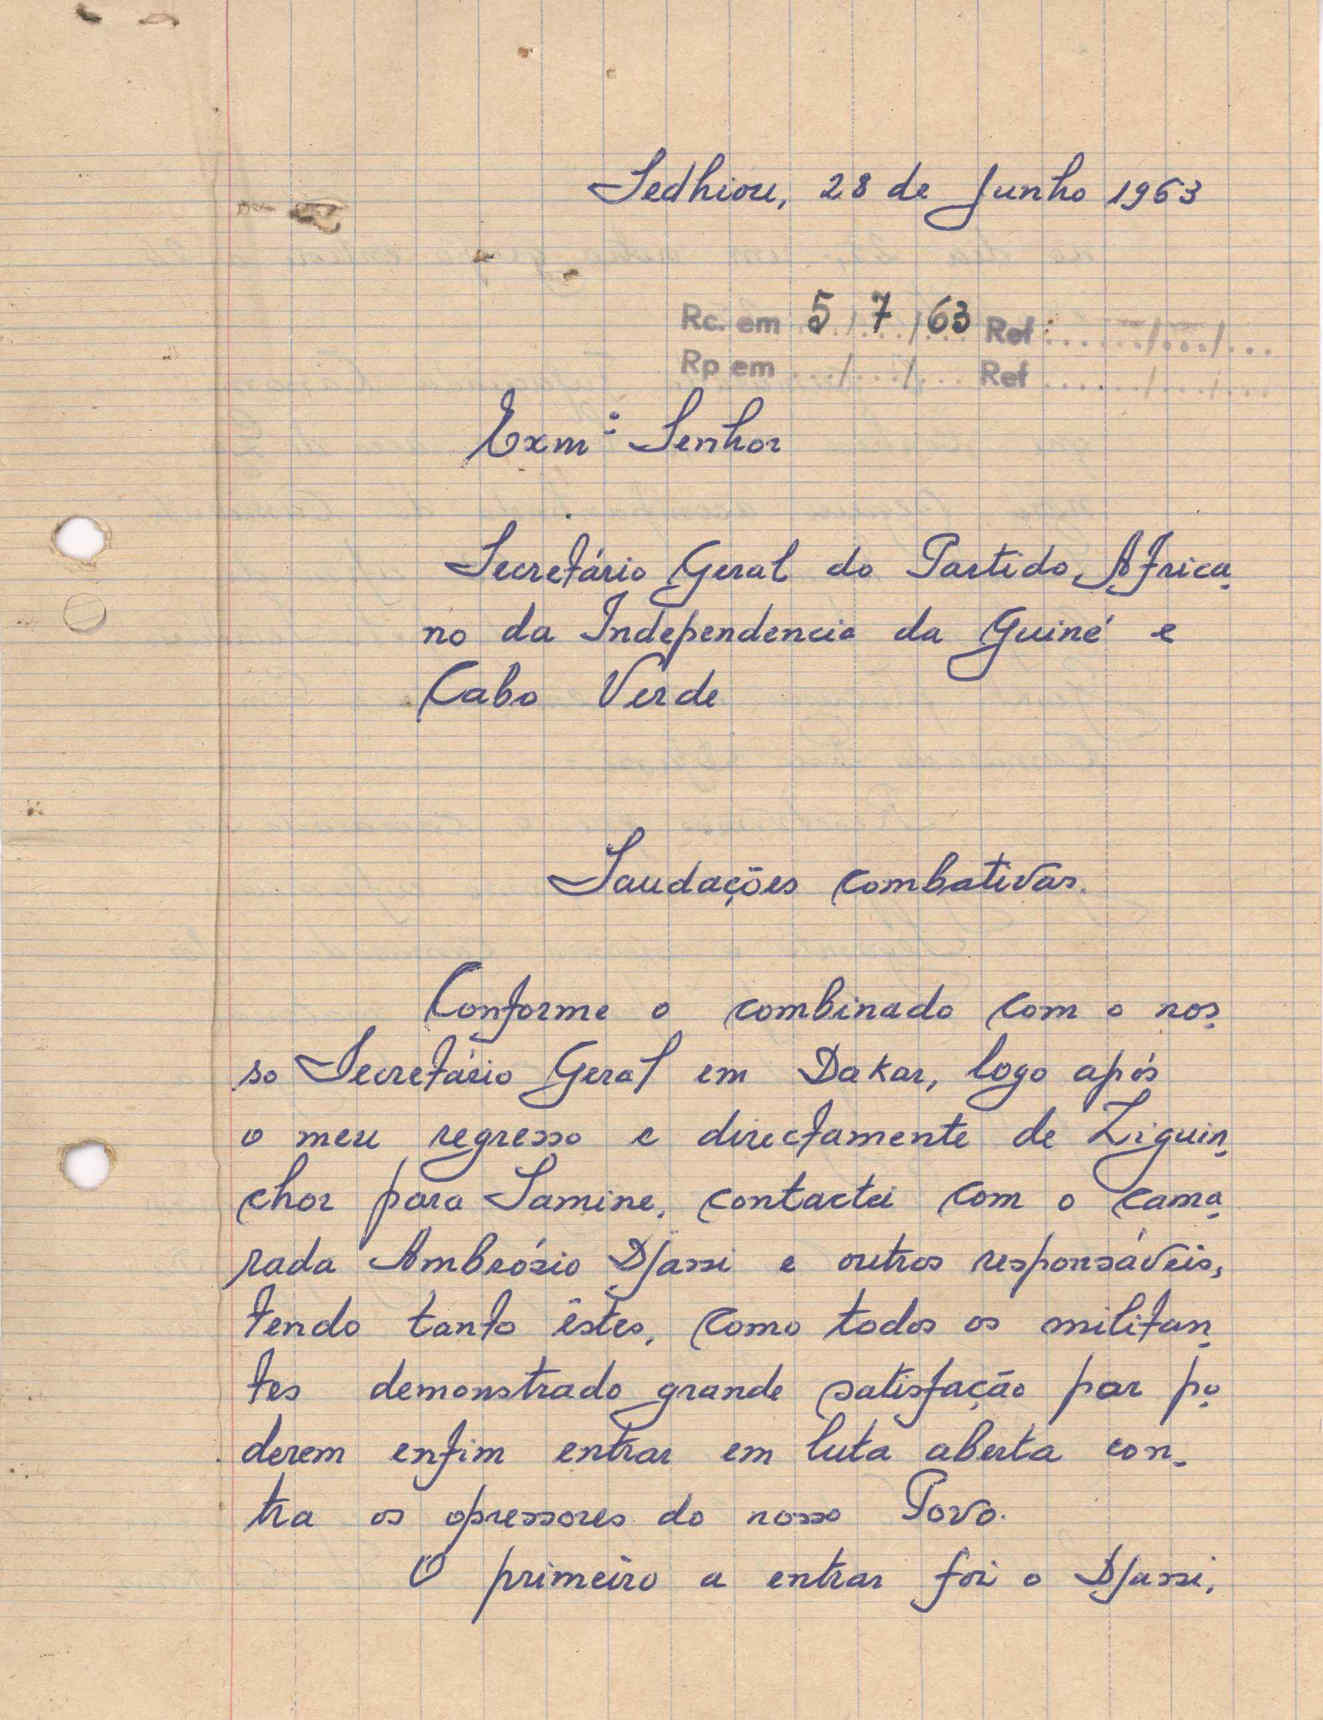 Sedhiou, 28 de Junho 1963
Rc. em 5/7/63 Ref: ....../.../...
Rp em .../.../... Ref ....../.../...
Exmº Senhor
Secretário Geral do Partido Africa-
no da Independencia da Guiné e
Cabo Verde
Saudações combativas.
Conforme o combinado com o nos-
so Secretário Geral em Dakar, logo após
o meu regresso e directamente de Ziguin-
chor para Samine, contactei com o cama-
rada Ambrósio Djassi e outros responsáveis,
tendo tanto êstes, como todos os militan-
tes demonstrado grande satisfação por po-
derem enfim entrar em luta aberta con-
tra os opressores do nosso Povo.
O primeiro a entrar foi o Djassi,